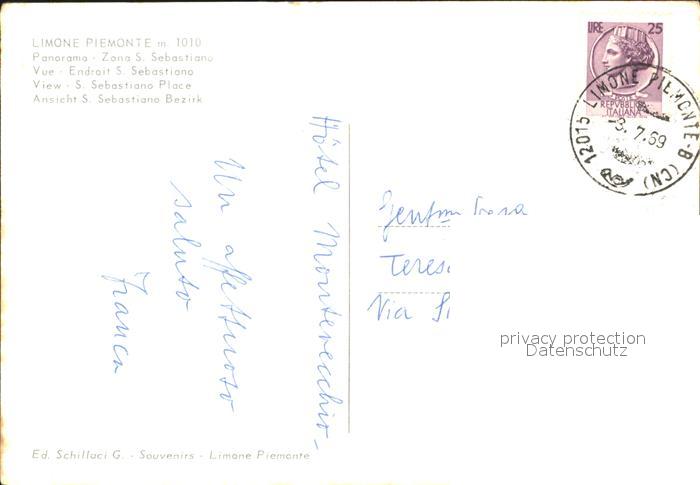 LIMONE PIEMONTE m. 1010
Panorama - Zona S. Sebastiano
Vue - Endroit S. Sebastiano
View - S. Sebastiano Place
Ansicht S. Sebastiano Bezirk
LIRE 25
POSTE
REPVBBLICA
ITALIANA
12015 LIMONE PIEMONTE-B (CN)
-8.7.69
Hôtel Montevecchio-
Un affettuoso
saluto
Franca
Teres
Via
privacy protection
Datenschutz
Ed. Schilluci G. - Souvenirs - Limone Piemonte